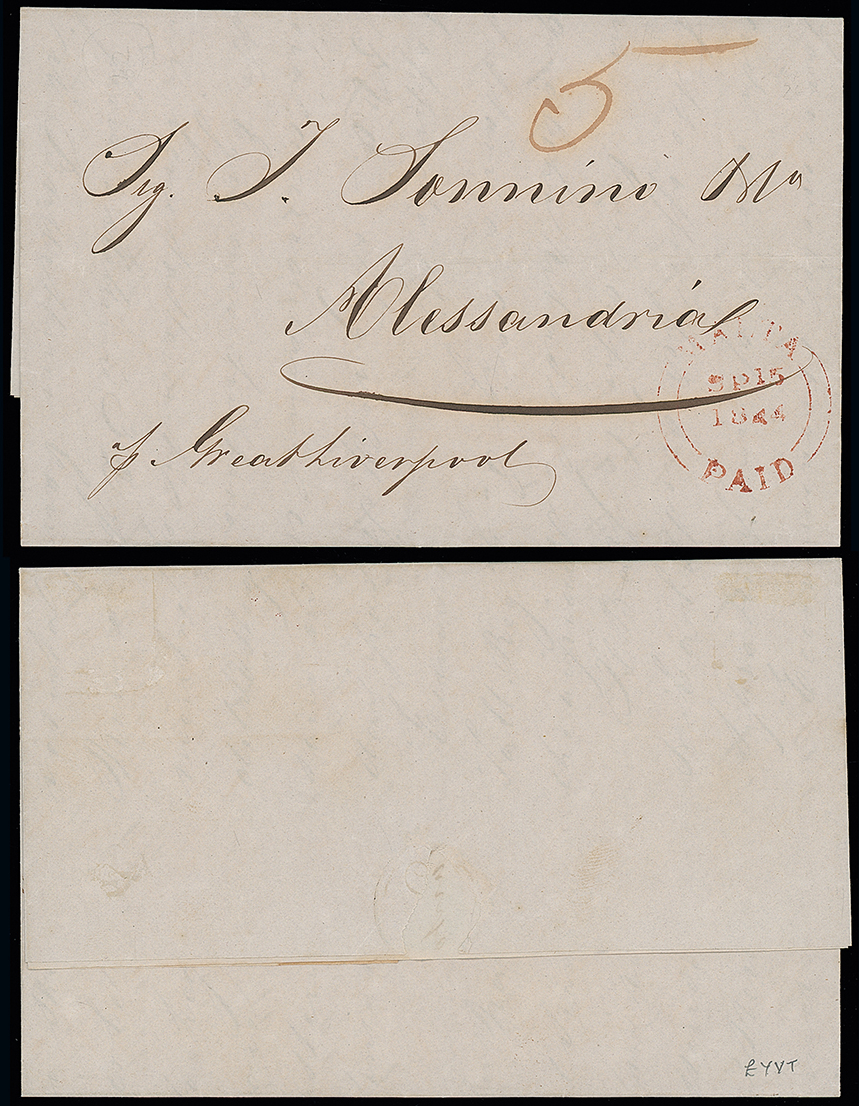 5
Sig. J. Sonnino
Alessandria
MALTA
SP 15
1844
PAID
p Great Liverpool
£YVT